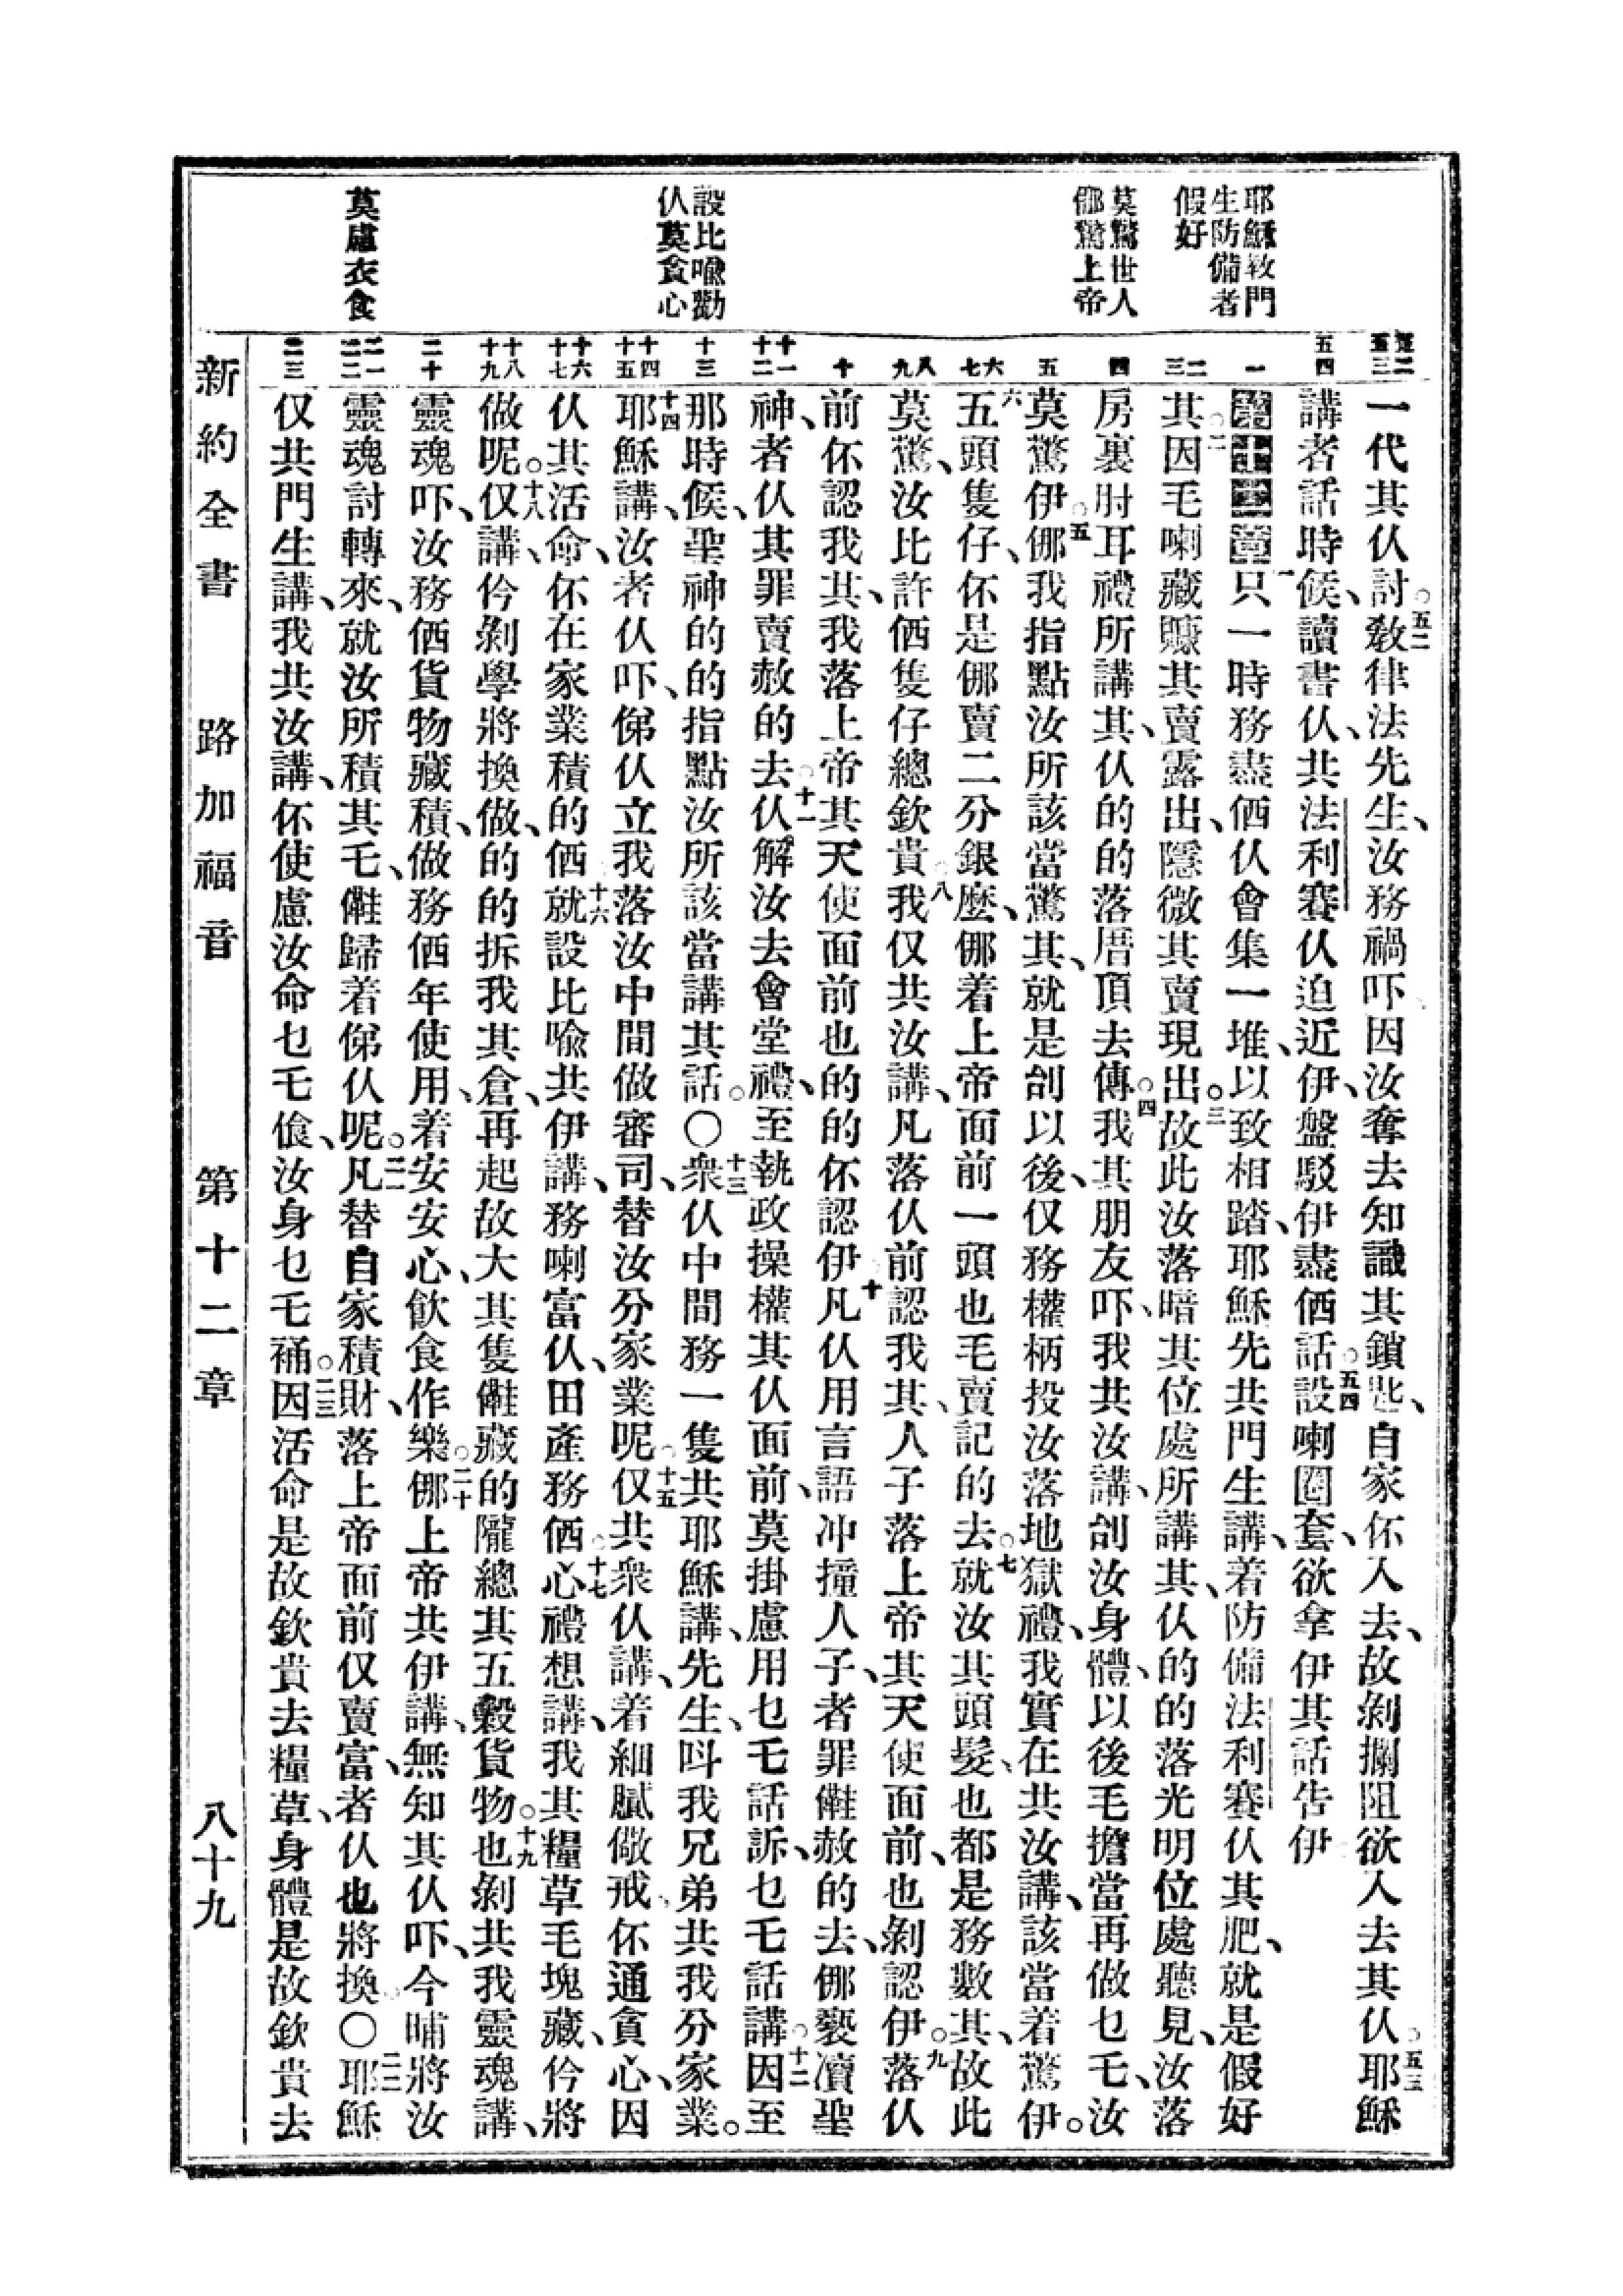 耶穌教門
生防備者
假好
莫驚世人
𠲥驚上帝
設比喩勸
仈莫貪心
莫慮衣食
五二
五三
五四
一
二
三
四
五
六
七
八
九
十
十一
十二
十三
十四
十五
十六
十七
十八
十九
二十
二一
二二
二三
一代其仈討。五二教律法先生、汝務禍吓、因汝奪去知識其鎖匙、自家伓入去、故剝攔阻欲入去其仈。五三耶穌
講者話時候、讀書仈、共法利賽仈迫近伊、盤駁伊盡𠱃話。五四設喇圈套、欲拿伊其話告伊
第十二章一只一時務盡𠱃仈會集一堆、以致相踏、耶穌先共門生講、着防備法利賽仈其肥、就是假好
其。二因毛喇藏𧸘其賣露出、隱微其賣現出。三故此汝落暗其位處所講其、仈的的落光明位處聽見、汝落
房裏肘耳禮所講其、仈的的落厝頂去傳。四我其朋友吓、我共汝講、刣汝身體、以後毛擔當再做乜乇、汝
莫驚伊。五𠲥我指點汝所該當驚其、就是刣以後、仅務權柄投汝落地獄禮、我實在共汝講、該當着驚伊。
六五頭隻仔、伓是𠲥賣二分銀麽、𠲥着上帝面前一頭也毛賣記的去。七就汝其頭髮、也都是務數其、故此
莫驚、汝比許𠱃隻仔總欽貴。八我仅共汝講、凡落仈前認我其、人子落上帝其天使面前、也剝認伊。九落仈
前伓認我其、我落上帝其天使面前也的的伓認伊。十凡仈用言語冲撞人子、者罪儺赦的去、𠲥褻凟聖
神、者仈其罪賣赦的去。十一仈解汝去會堂禮、至執政操權其仈面前、莫掛慮用乜乇話訴、乜乇話講。十二因至
那時候、聖神的的指點汝所該當講其話。〇十三衆仈中間務一隻共耶穌講、先生、呌我兄弟共我分家業。
十四耶穌講、汝者仈吓、俤仈立我落汝中間做審司、替汝分家業呢。十五仅共衆仈講、着細膩儆戒伓通貪心、因
仈其活命、伓在家業積的𠱃。十六就設比喩共伊講、務喇富仈、田產務𠱃。十七心禮想講、我其糧草毛塊藏、伶將
做呢。十八仅講、伶剝學將換做、的的拆我其倉、再起故大其隻儺藏的隴總其五穀貨物也。十九剝共我靈魂講、
靈魂吓、汝務𠱃貨物藏積、做務𠱃年使用、着安安心、飲食作樂。二十𠲥上帝共伊講、無知其仈吓、今晡將汝
靈魂討轉來、就汝所積其乇、儺歸着俤仈呢。二一凡替自家積財、落上帝面前仅賣富、者仈也將換。〇二二耶穌
仅共門生講、我共汝講、伓使慮汝命乜乇飡、汝身乜乇補。二三因活命是故欽貴去糧草、身體是故欽貴去
新約全書　路加福音　第十二章　八十九